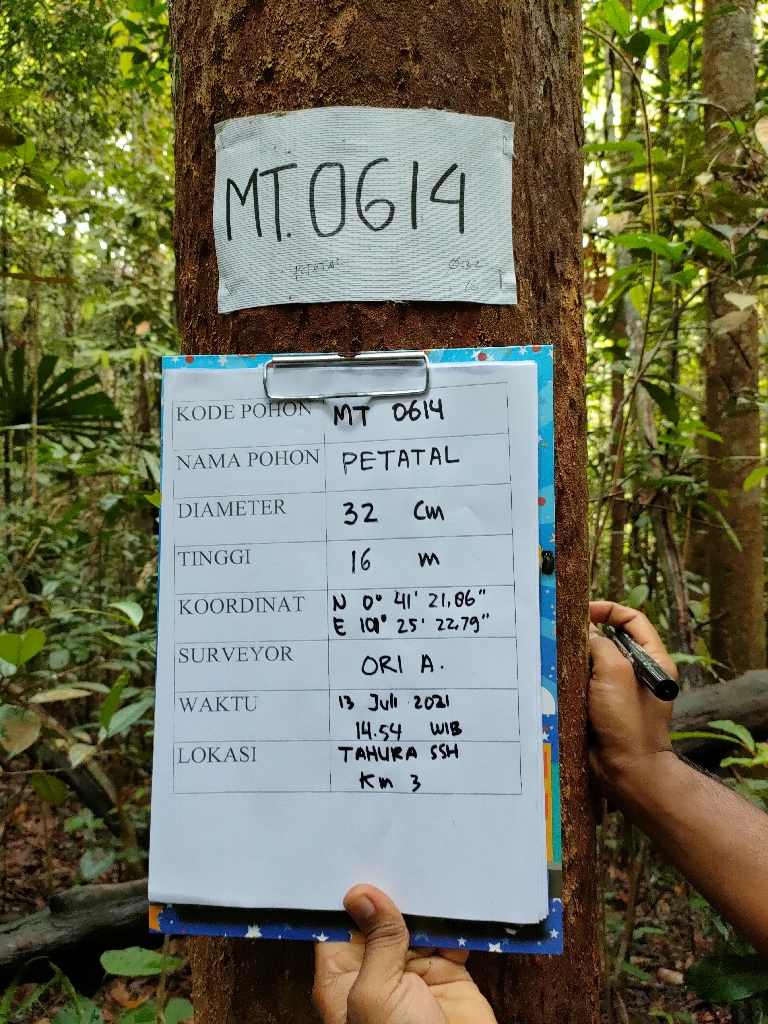 MT.0614
PETATAL
KODE POHON MT 0614
NAMA POHON PETATAL
DIAMETER 32 Cm
TINGGI 16 m
KOORDINAT N 0° 41' 21,06"
E 101° 25' 22,79"
SURVEYOR ORI A.
WAKTU 13 Juli 2021
14.54 WIB
LOKASI TAHURA SSH
Km 3